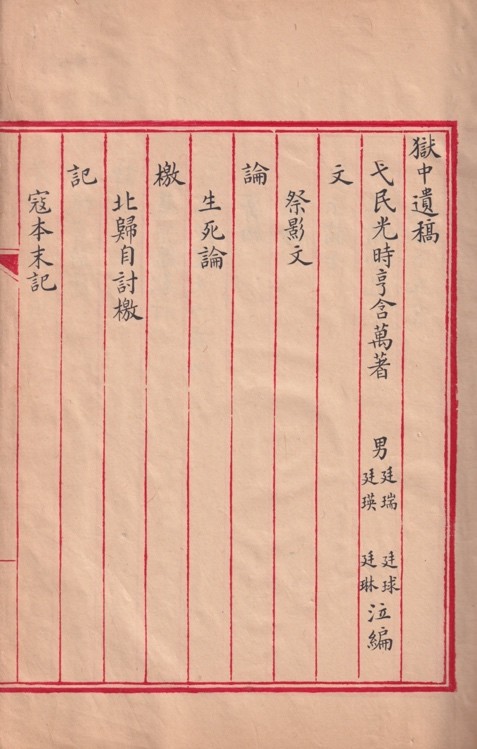 獄中遺稿
弋民光時亨含萬著 男廷瑞廷瑛廷球廷琳泣編
文
祭影文
論
生死論
檄
北歸自討檄
記
寇本末記